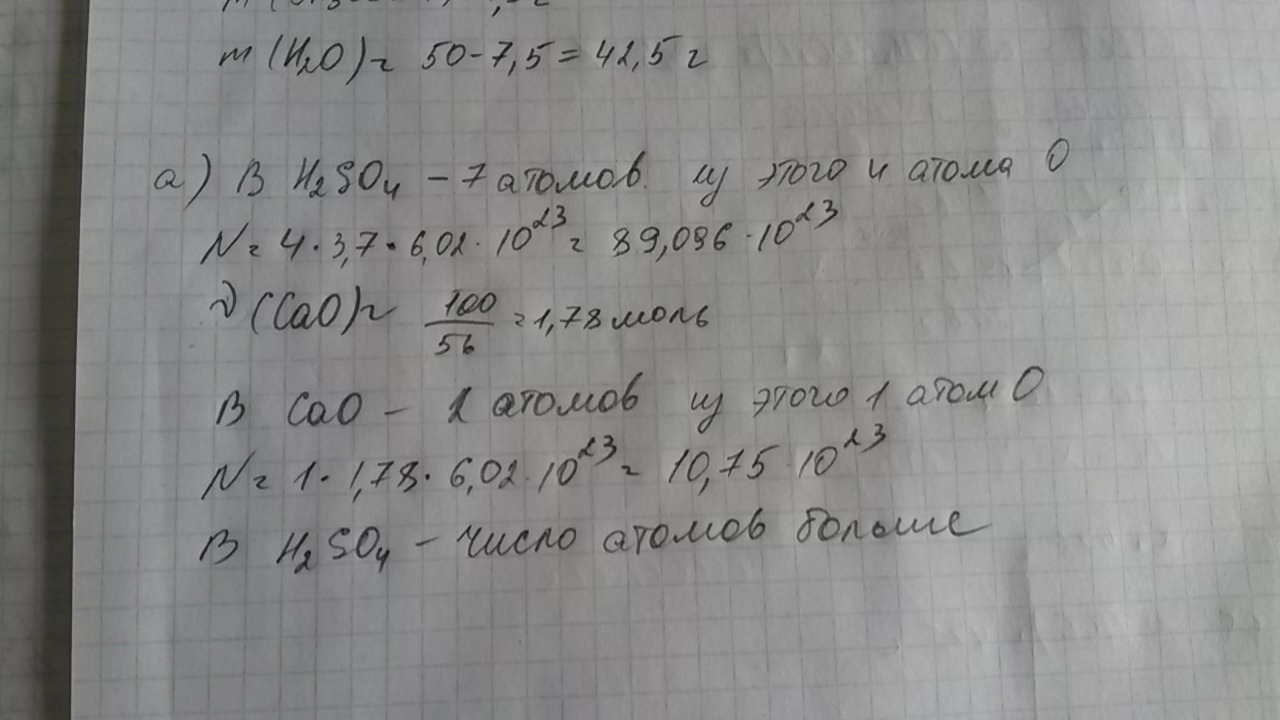 m (H₂O) = 50 - 7,5 = 42,5 г
а) В H₂SO₄ - 7 атомов из этого 4 атома О
N = 4 · 3,7 · 6,02 · 10²³ = 89,096 · 10²³
ν (CaO) = 100/56 = 1,78 моль
В CaO - 2 атомов из этого 1 атом О
N = 1 · 1,78 · 6,02 · 10²³ = 10,75 · 10²³
В H₂SO₄ - число атомов больше